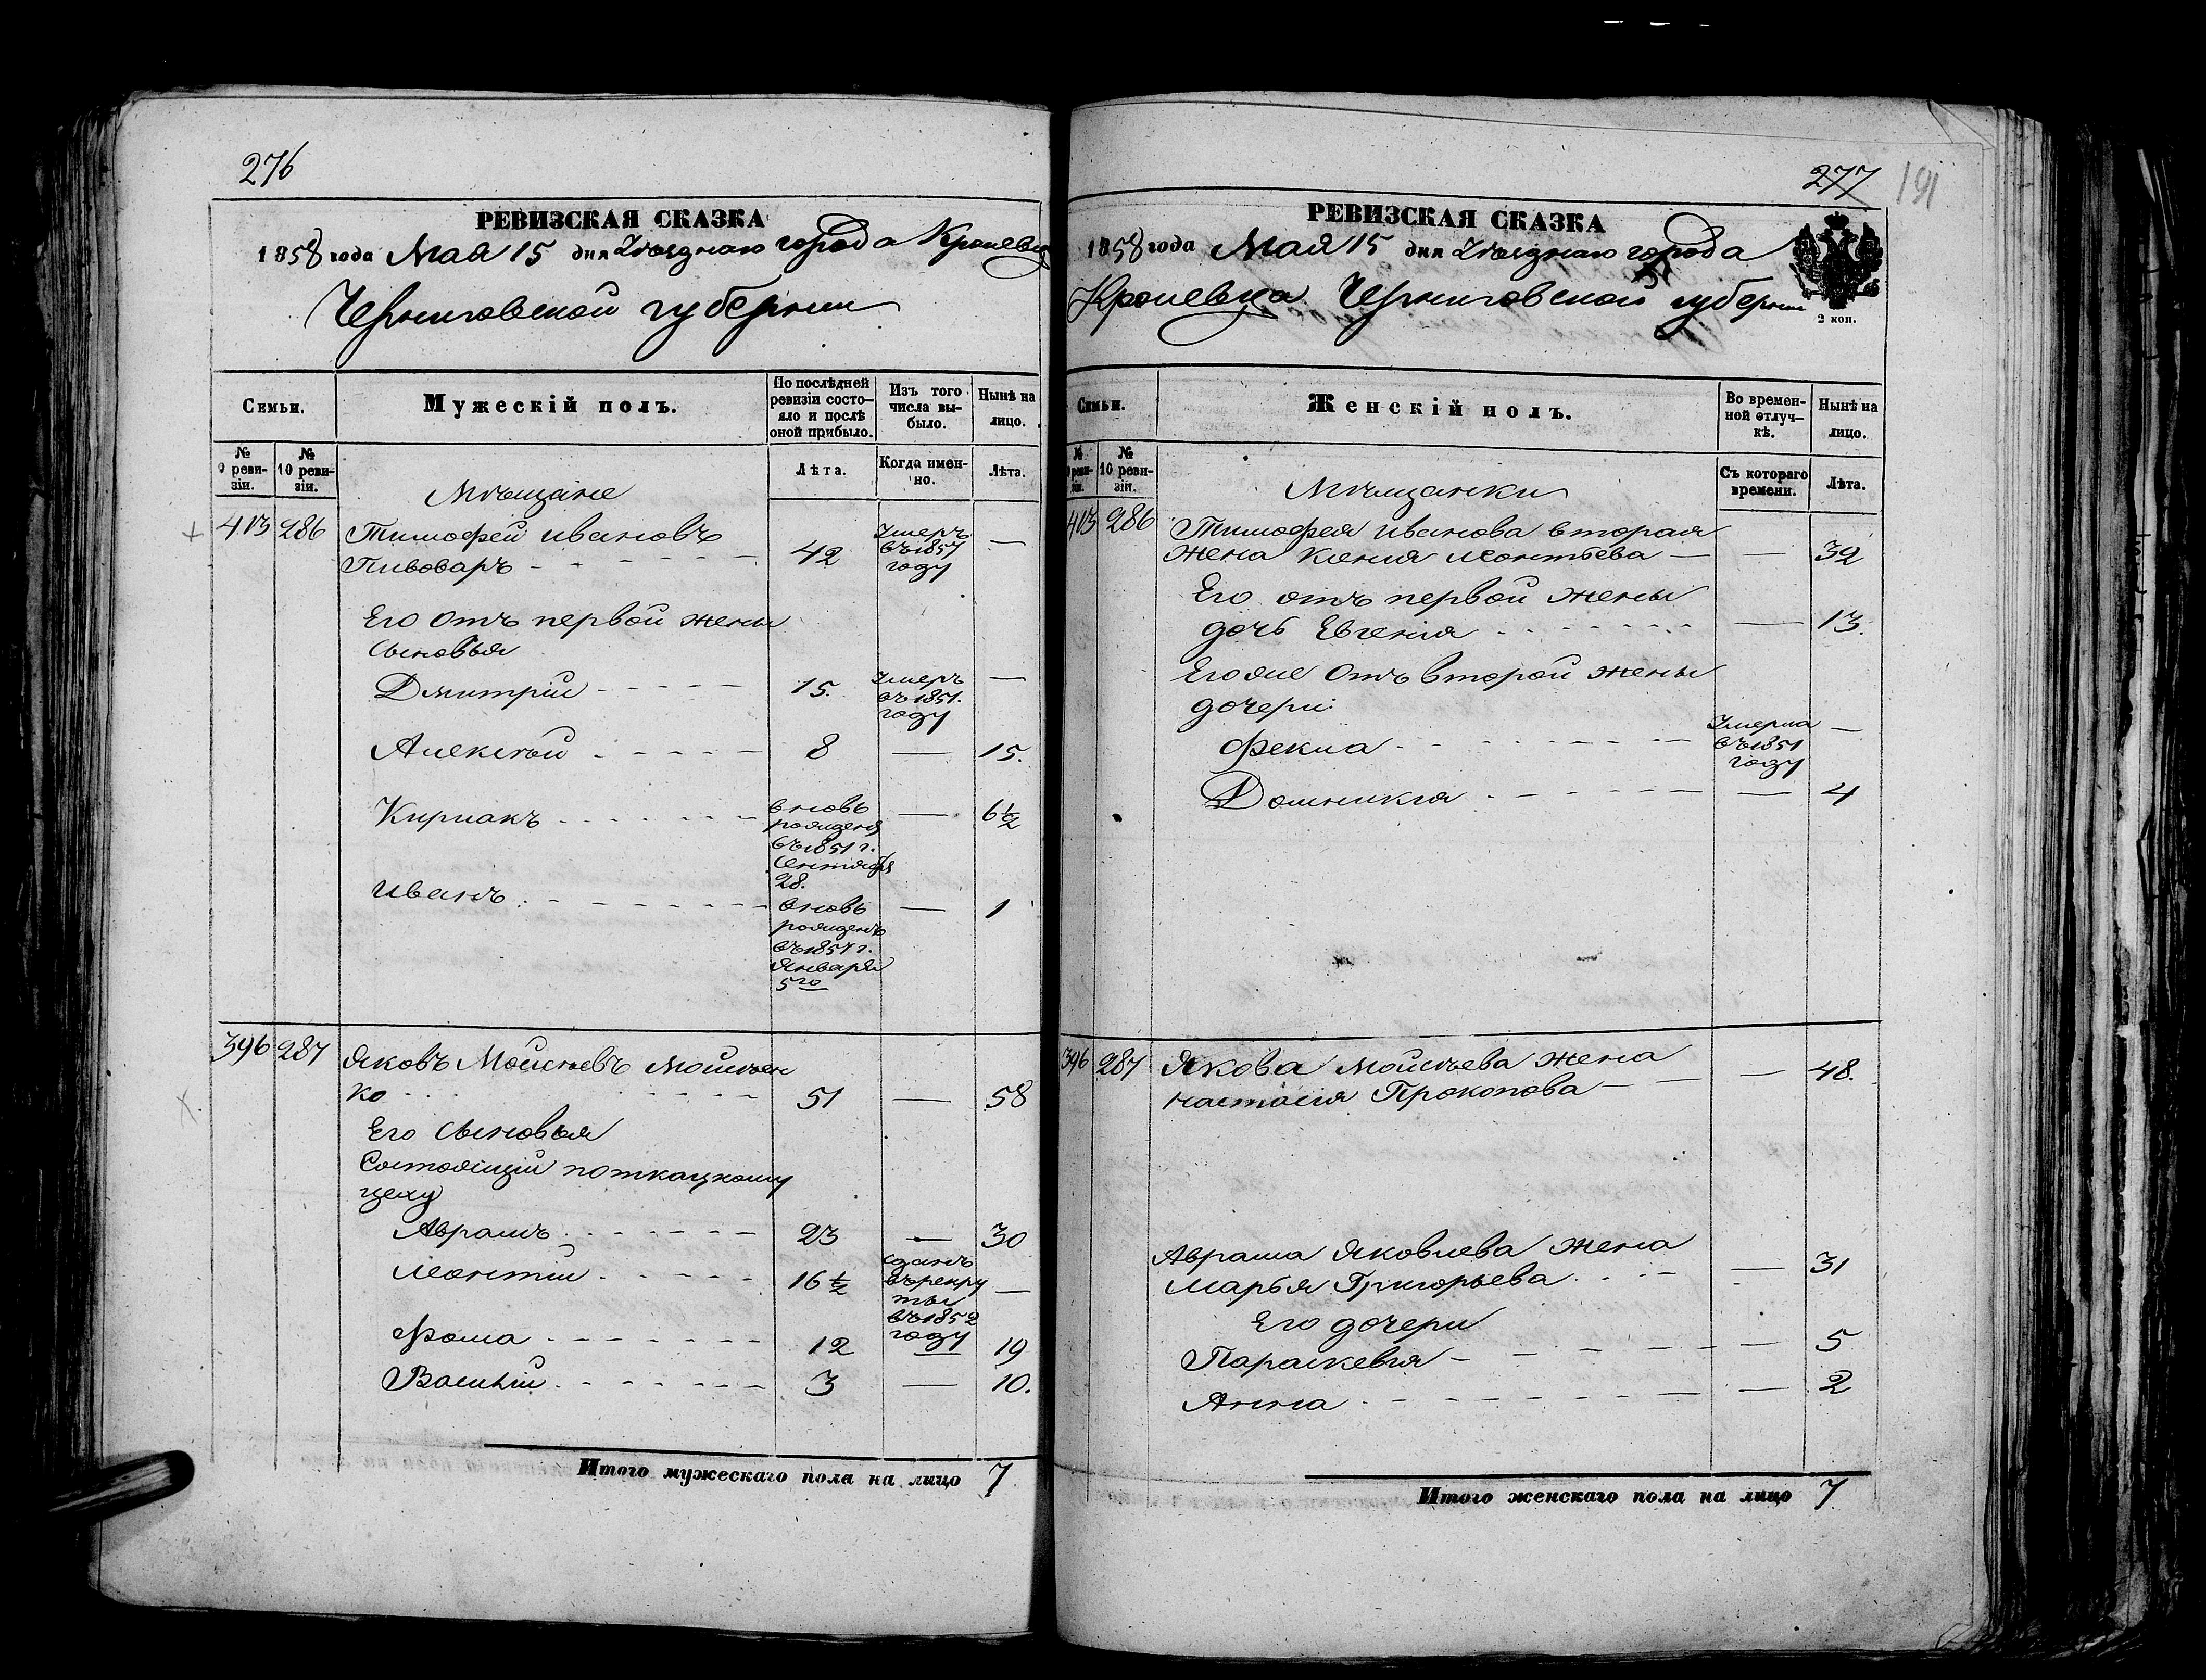 276
РЕВИЗСКАЯ СКАЗКА
1858 года Мая 15 дня Уѣзднаго города Кролевца
Черниговской губерніи
Семьи.
Мужескій полъ.
По послѣдней ревизіи состояло и послѣ оной прибыло.
Изъ того числа выбыло.
Нынѣ на лицо.
№ 9 ревизіи.
№ 10 ревизіи.
Лѣта.
Когда именно.
Лѣта.
Мѣщане
413 286 Тимофей Ивановъ
Пивоваръ - - - - 42 Умеръ въ 1857 году —
Его отъ первой жены
сыновья
Дмитрій - - - - 15. Умеръ въ 1851. году —
Алексѣй - - - - 8 — 15.
Киріакъ - - - - вновь рожденъ въ 1851 г. Сентября 28. — 6 1/2
Иванъ - - - - вновь рожденъ въ 1857 г. Января 5го — 1
396 287 Яковъ Мойсѣевъ Мойсѣен
ко - - - - 51 — 58
Его сыновья
Состоящій по ткацкому
цеху
Аврамъ - - - - 23 — 30
Леонтій - - - - 16 1/2 сданъ въ рекруты въ 1852 году —
Фома - - - - 12 — 19
Василій - - - - 3 — 10.
Итого мужескаго пола на лицо 7
277 191
РЕВИЗСКАЯ СКАЗКА
1858 года Мая 15 дня Уѣзднаго города
Кролевца Черниговской губерніи
2 коп.
Семьи.
Женскій полъ.
Во временной отлучкѣ.
Нынѣ на лицо.
№ 9 ревизіи.
№ 10 ревизіи.
Съ котораго времени.
Лѣта.
Мѣщанки
413 286 Тимофея Иванова вторая
жена Ксенія Леонтьева — — 32
Его отъ первой жены
дочь Евгенія - - - - — 13.
Его же отъ второй жены
дочери:
Фекла - - - - Умерла въ 1851 году —
Домникія - - - - — 4
396 287 Якова Мойсѣева жена
Настасія Прокопова — — 48.
Аврама Яковлева жена
Марья Григорьева - - - — 31
Его дочери
Параскевія - - - - — 5
Анна - - - - — 2
Итого женскаго пола на лицо 7